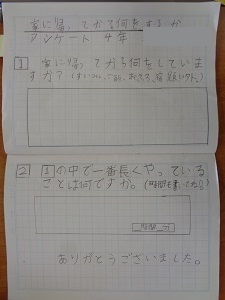 家に帰ってから何をするか
アンケート 4年
1 家に帰ってから何をしていま
すか?(すいみん、ごはん、おふろ、宿題以外)
2 1の中で一番長くやっている
ことは何ですか。(時間も書いて下さい)
時間 分
ありがとうございました。